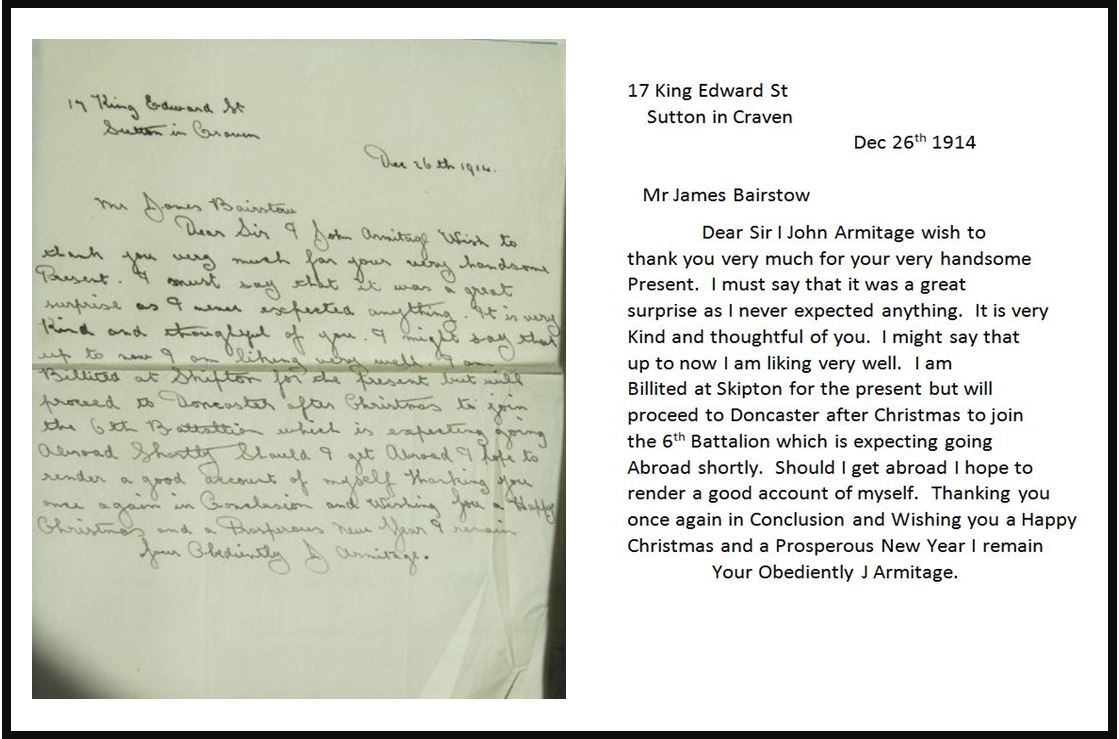 17 King Edward St
Sutton in Craven
Dec 26th 1914.
Mr James Bairstow
Dear Sir I John Armitage Wish to
thank you very much for your very handsome
Present. I must say that it was a great
surprise as I never expected anything. It is very
Kind and thoughful of you. I might say that
up to now I am liking very well. I am
Billited at Skipton for the present but will
proceed to Doncaster after Christmas to join
the 6th Battattion which is expecting going
Abroad Shortly Should I get Abroad I hope to
render a good account of myself Thanking you
once again in Conclusion and Wishing you a Happy
Christmas and a Prosperous New Year I remain
Your Obediently J Armitage.
17 King Edward St
Sutton in Craven
Dec 26th 1914
Mr James Bairstow
Dear Sir I John Armitage wish to
thank you very much for your very handsome
Present. I must say that it was a great
surprise as I never expected anything. It is very
Kind and thoughtful of you. I might say that
up to now I am liking very well. I am
Billited at Skipton for the present but will
proceed to Doncaster after Christmas to join
the 6th Battalion which is expecting going
Abroad shortly. Should I get abroad I hope to
render a good account of myself. Thanking you
once again in Conclusion and Wishing you a Happy
Christmas and a Prosperous New Year I remain
Your Obediently J Armitage.